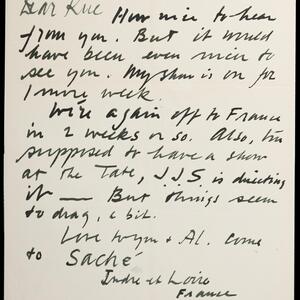 Dear Kue
How nice to hear
from you. But it would
have been even nicer to
see you. My show is on for
1 more week.
We're again off to France
in 2 weeks or so. Also, I'm
supposed to have a show
at the Tate, J.J.S is directing
it — But things seem
to drag, a bit.
Love to you & Al. Come
to Saché
Indre et Loire
France